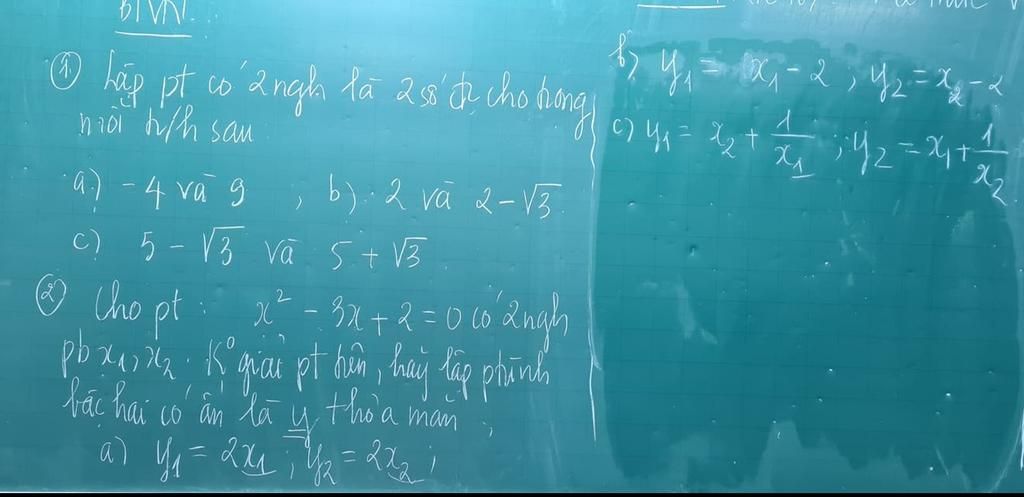 BTVN:
① Lập pt có 2 ngh là 2 số đc cho trong
mỗi t/h sau
a) -4 và 9 , b) 2 và 2-√3
c) 5 - √3 và 5 + √3
② Cho pt : x² - 3x + 2 = 0 có 2 ngh
pb x₁, x₂. K° giải pt trên, hãy lập phtrình
bậc hai có ẩn là y thỏa mãn,
a) y₁ = 2x₁ ; y₂ = 2x₂ ;
b) y₁ = x₁ - 2 ; y₂ = x₂ - 2
c) y₁ = x₂ + 1/x₁ ; y₂ = x₁ + 1/x₂